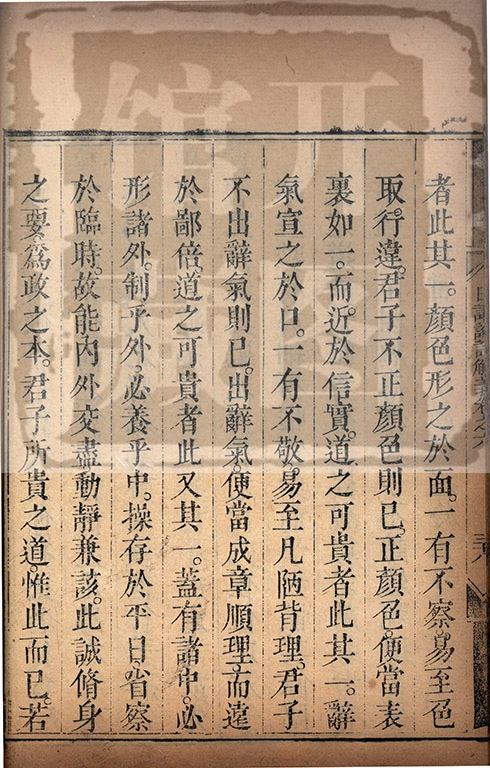 者此其一。顏色形之於面。一有不察。易至色
取行違。君子不正顏色則已。正顏色。便當表
裏如一。而近於信實。道之可貴者此其一。辭
氣宣之於口。一有不敬。易至凡陋背理。君子
不出辭氣則已。出辭氣。便當成章順理。而遠
於鄙倍。道之可貴者此又其一。蓋有諸中。必
形諸外。制乎外。必養乎中。操存於平日。省察
於臨時。故能內外交盡。動靜兼該。此誠脩身
之要。為政之本。君子所貴之道。惟此而已。若